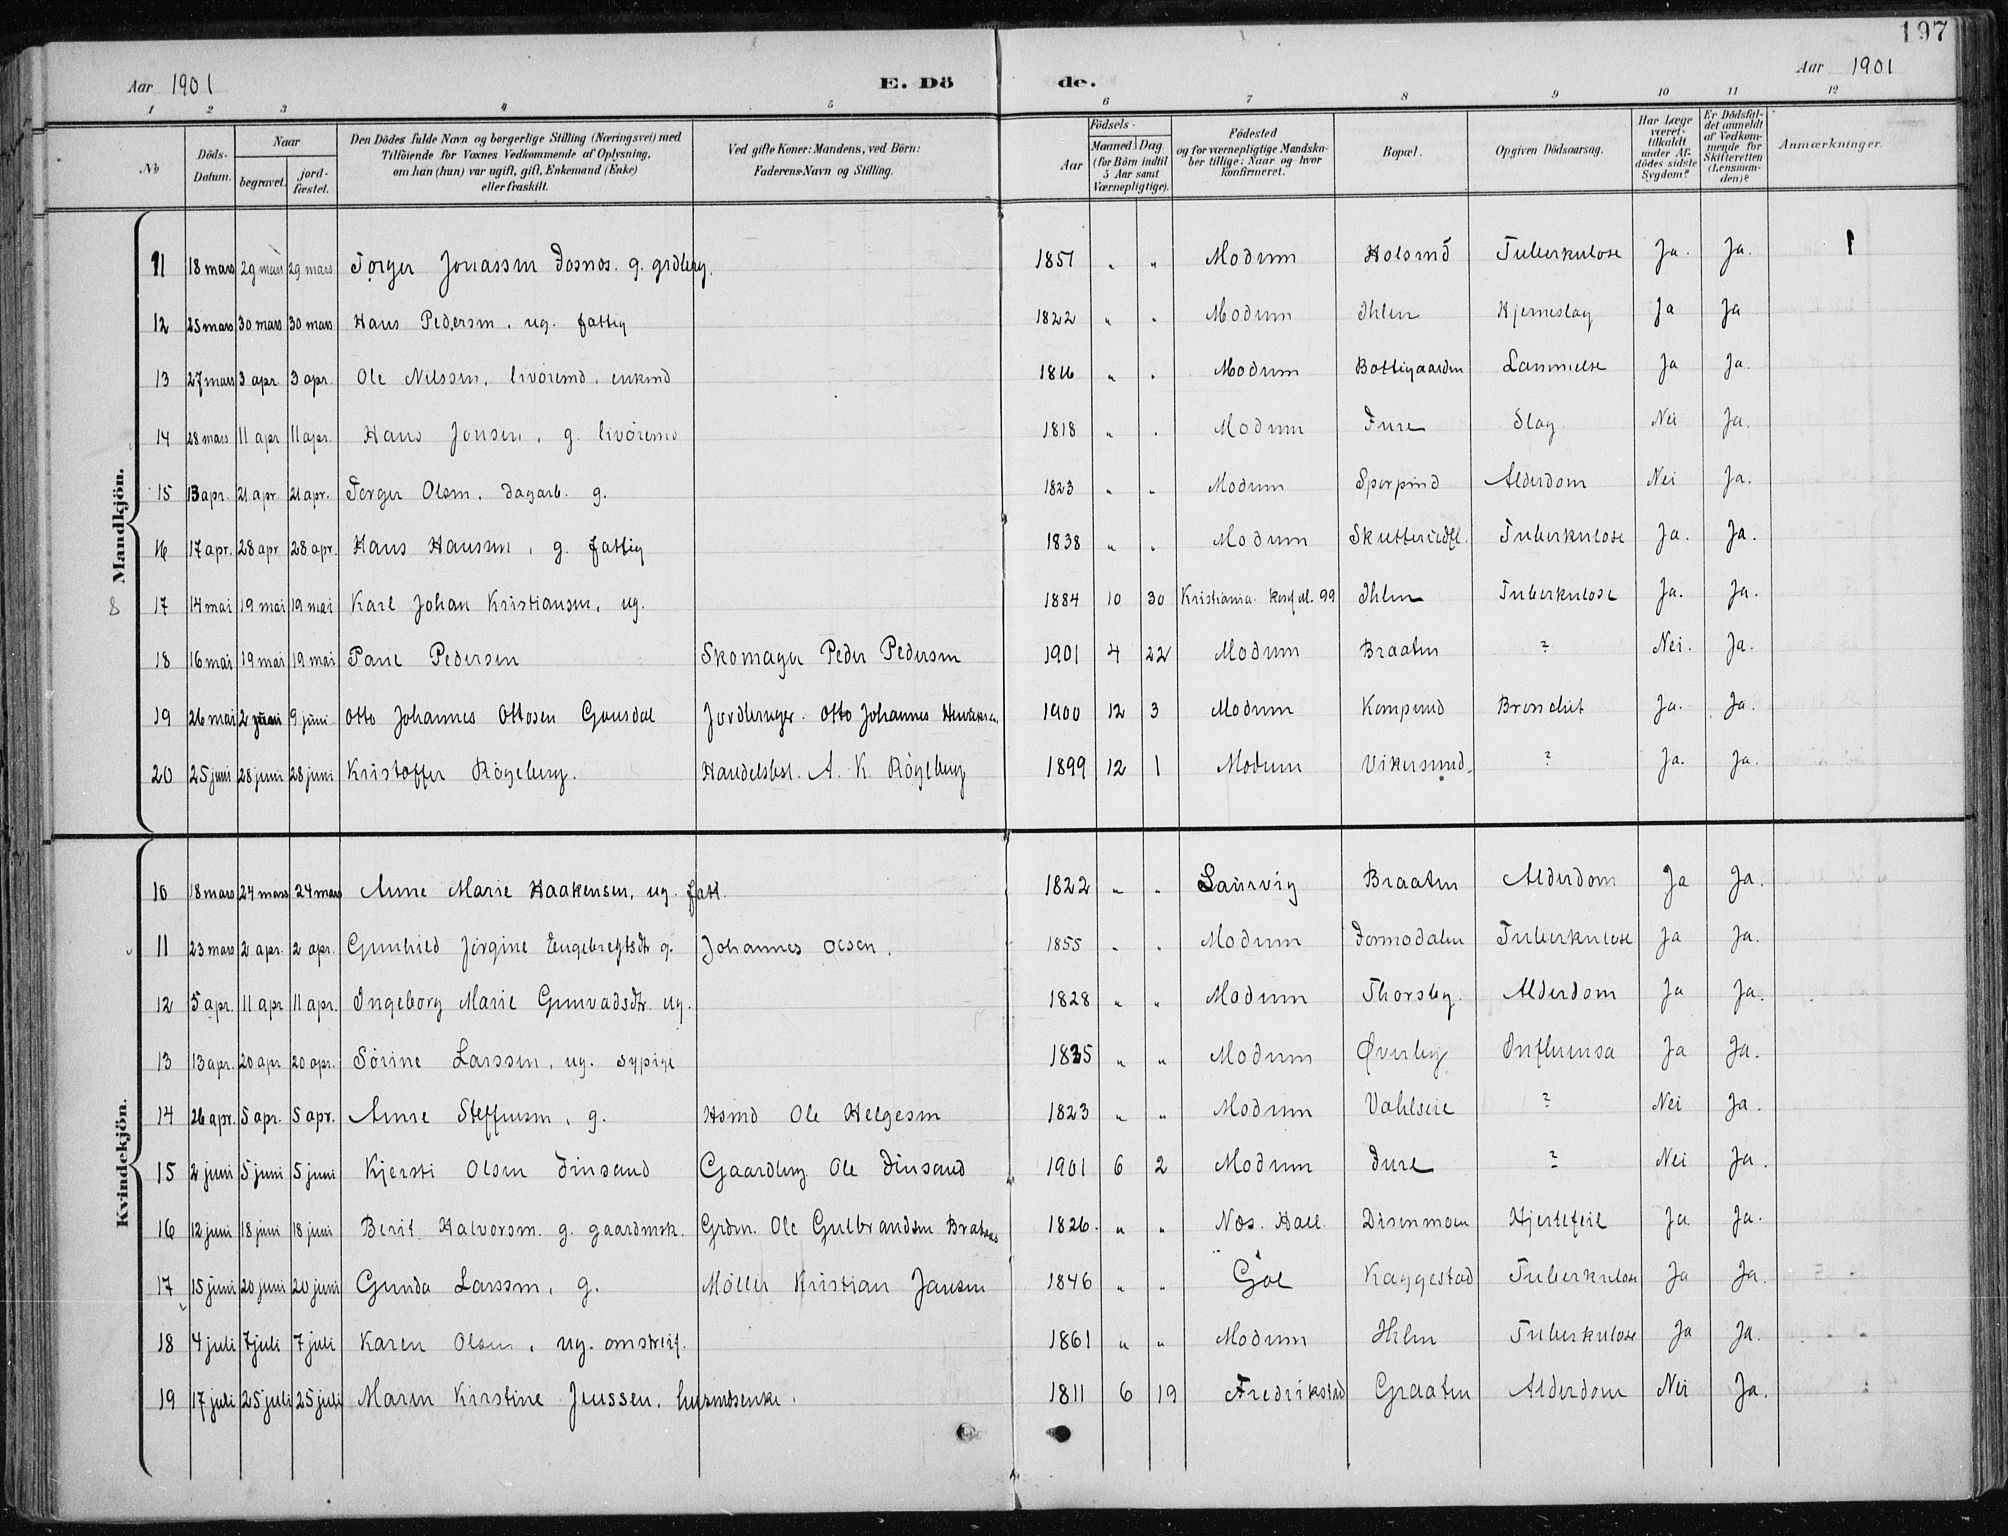 197
Aar 1901 E. Dö de. Aar 1901
1 2 3 4 5 6 7 8 9 10 11 12
No
Döds-Datum.
Naar
begravet.
jord-fæstet.
Den Dödes fulde Navn og borgerlige Stilling (Næringsvei) med
Tilföiende for Voxnes Vedkommende af Oplysning,
om han (hun) var ugift, gift, Enkemand (Enke)
eller fraskilt.
Ved gifte Koner: Mandens, ved Börn:
Faderens Navn og Stilling.
Födsels-
Aar
Maaned Dag
(for Börn indtil
5 Aar samt
Værnepligtige).
Födested
og for værnepligtige Mandska-
ber tillige: Naar og hvor
konfirmeret.
Bopæl.
Opgiven Dödsaarsag.
Har Læge
været
tilkaldt
under Af-
dödes sidste
Sygdom?
Er Dödsfal-
det anmeldt
af Vedkom-
mende for
Skifteretten
(Lensman-
den)?
Anmærkninger.
Mandkjön.
11 18 mars 29 mars 29 mars Torger Jonassen Fosnos. g. grdbrug. 1851 " " Modum Holsund Tuberkulose Ja. Ja. 1
12 25 mars 30 mars 30 mars Hans Pedersen, ug. fattig 1822 " " Modum Ihlen Hjerneslag Ja Ja
13 27 mars 3 apr. 3 apr. Ole Nilssen, livöremd, enkmd 1816 " " Modum Bottegaarden Lammelse Ja Ja.
14 28 mars 11 apr 11 apr. Hans Jonsen, g. livöremd 1818 " " Modum Fure Slag Nei Ja.
15 13 apr. 21 apr. 21 apr. Torger Olsen, dagarb. g. 1823 " " Modum Sperpind Alderdom Nei Ja.
16 17 apr. 28 apr 28 apr. Hans Hanssen, g. fattig 1838 " " Modum Skutterudfl. Tuberkulose Ja. Ja.
8 17 14 mai 19 mai 19 mai Karl Johan Kristiansen, ug. 1884 10 30 Kristiania. konf. 99 Ihlen Tuberkulose Ja. Ja.
18 16 mai 19 mai 19 mai Paul Pedersen Skomager Peder Pedersen 1901 4 22 Modum Braaten ? Nei. Ja.
19 26 mai 2 juni 9 juni Otto Johannes Ottosen Gausdal Jordbruger. Otto Johannes Henriksen 1900 12 3 Modum Kompund Bronchit Ja. Ja.
20 25 juni 28 juni 28 juni Kristoffer Rögeberg. Handelsbest. A. K. Rögeberg 1899 12 1 Modum Vikersund. ? Ja. Ja.
Kvindekjön.
10 18 mars 24 mars 24 mars Anne Marie Haakensen, ug. fatt. 1822 " " Laurvig Braaten Alderdom Ja Ja.
11 23 mars 2 apr. 2 apr. Gunhild Jörgine Engebregtsdtr g. Johannes Olsen. 1855 " " Modum Formodalen Tuberkulose Ja Ja.
12 5 apr. 11 apr 11 apr. Ingeborg Marie Gunvadsdtr. ug. 1828 " " Modum Thorsby. Alderdom Ja Ja.
13 13 apr. 20 apr 20 apr. Sörine Larssen, ug. sypige 1835 " " Modum Øverby Influensa Ja Ja.
14 26 apr. 5 apr. 5 apr. Anne Steffensen, g. Hsmd Ole Helgesen 1823 " " Modum Vahlseie ? Nei Ja.
15 2 juni 5 juni 5 juni Kjersti Olsen Finsand Gaardbrug Ole Finsand 1901 6 2 Modum Fure ? Nei Ja.
16 12 juni 18 juni 18 juni Berit Halvorsen. g. gaardmsk. Grdm. Ole Gulbrandsen 1826. " " Nes. Hall. Disenmoen Hjertefeil Ja Ja.
17 15 juni 20 juni 20 juni Gunda Larssen, g. Möller Kristian Jansen 1846 " " Gol Kaggestad Tuberkulose Ja Ja.
18 4 juli 7 juli 7 juli Karen Olsen, ug. omstreif. 1861 " " Modum Ihlen Tuberkulose Ja Ja.
19 17 juli 25 juli 25 juli Maren Kirstine Jenssen, husmdsenke. 1811 6 19 Fredrikstad Graaten Alderdom Nei Ja.